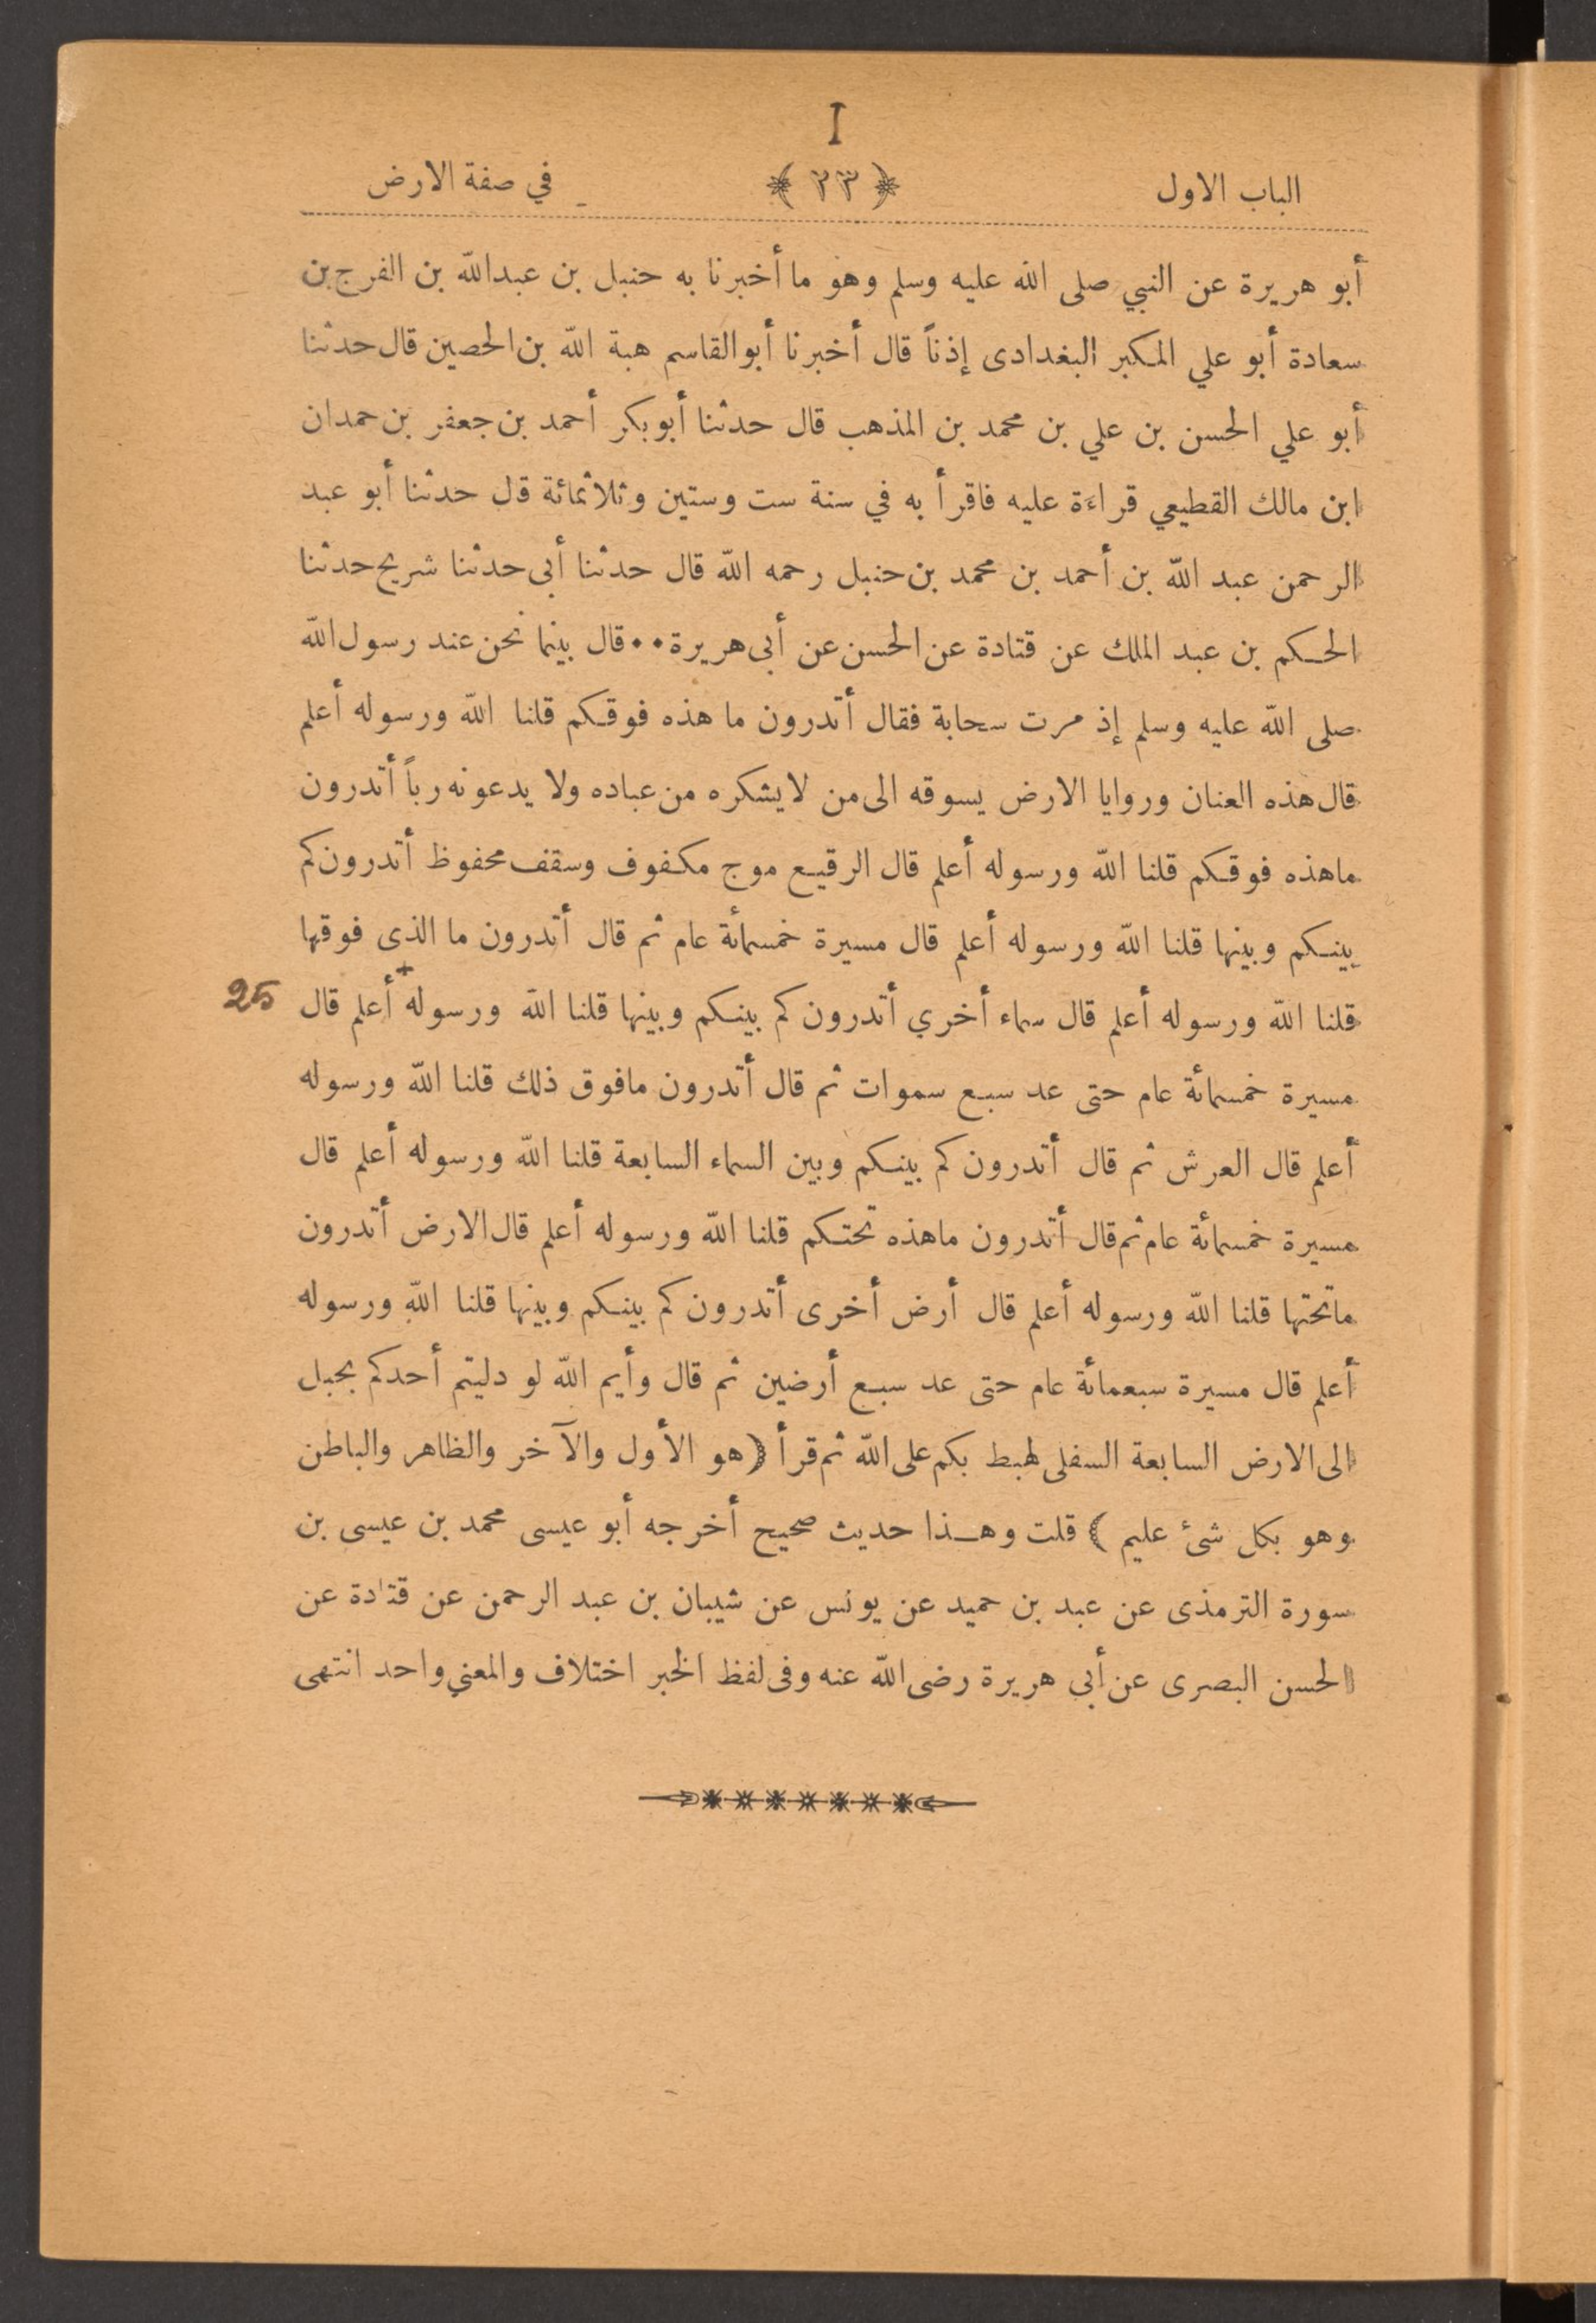 I
الباب الاول ﴿ ٢٣ ﴾ في صفة الارض
أبو هريرة عن النبي صلى الله عليه وسلم وهو ما أخبرنا به حنبل بن عبدالله بن الفرج بن
سعادة أبو علي المكبر البغدادى إذناً قال أخبرنا أبوالقاسم هبة الله بن الحصين قال حدثنا
أبو علي الحسن بن علي بن محمد بن المذهب قال حدثنا أبو بكر أحمد بن جعفر بن حمدان
ابن مالك القطيعي قراءة عليه فاقرأ به في سنة ست وستين وثلاثمائة قل حدثنا أبو عبد
الرحمن عبد الله بن أحمد بن محمد بن حنبل رحمه الله قال حدثنا أبى حدثنا شريح حدثنا
الحكم بن عبد الملك عن قتادة عن الحسن عن أبى هريرة ٠٠ قال بينما نحن عند رسول الله
صلى الله عليه وسلم إذ مرت سحابة فقال أتدرون ما هذه فوقكم قلنا الله ورسوله أعلم
قال هذه العنان وروايا الارض يسوقه الى من لا يشكره من عباده ولا يدعونه رباً أتدرون
ماهذه فوقكم قلنا الله ورسوله أعلم قال الرقيع موج مكفوف وسقف محفوظ أتدرون كم
بينكم وبينها قلنا الله ورسوله أعلم قال مسيرة خمسمائة عام ثم قال أتدرون ما الذى فوقها
قلنا الله ورسوله أعلم قال سماء أخري أتدرون كم بينكم وبينها قلنا الله ورسوله + أعلم قال 25
مسيرة خمسمائة عام حتى عد سبع سموات ثم قال أتدرون مافوق ذلك قلنا الله ورسوله
أعلم قال العرش ثم قال أتدرون كم بينكم وبين السماء السابعة قلنا الله ورسوله أعلم قال
مسيرة خمسمائة عام ثم قال أتدرون ماهذه تحتكم قلنا الله ورسوله أعلم قال الارض أتدرون
ماتحتها قلنا الله ورسوله أعلم قال أرض أخرى أتدرون كم بينكم وبينها قلنا الله ورسوله
أعلم قال مسيرة سبعمائة عام حتى عد سبع أرضين ثم قال وأيم الله لو دليتم أحدكم بحبل
الى الارض السابعة السفلى لهبط بكم على الله ثم قرأ ﴿ هو الأول والآخر والظاهر والباطن
وهو بكل شئ عليم ﴾ قلت وهذا حديث صحيح أخرجه أبو عيسى محمد بن عيسى بن
سورة الترمذى عن عبد بن حميد عن يونس عن شيبان بن عبد الرحمن عن قتادة عن
الحسن البصرى عن أبي هريرة رضى الله عنه وفى لفظ الخبر اختلاف والمعني واحد انتهى